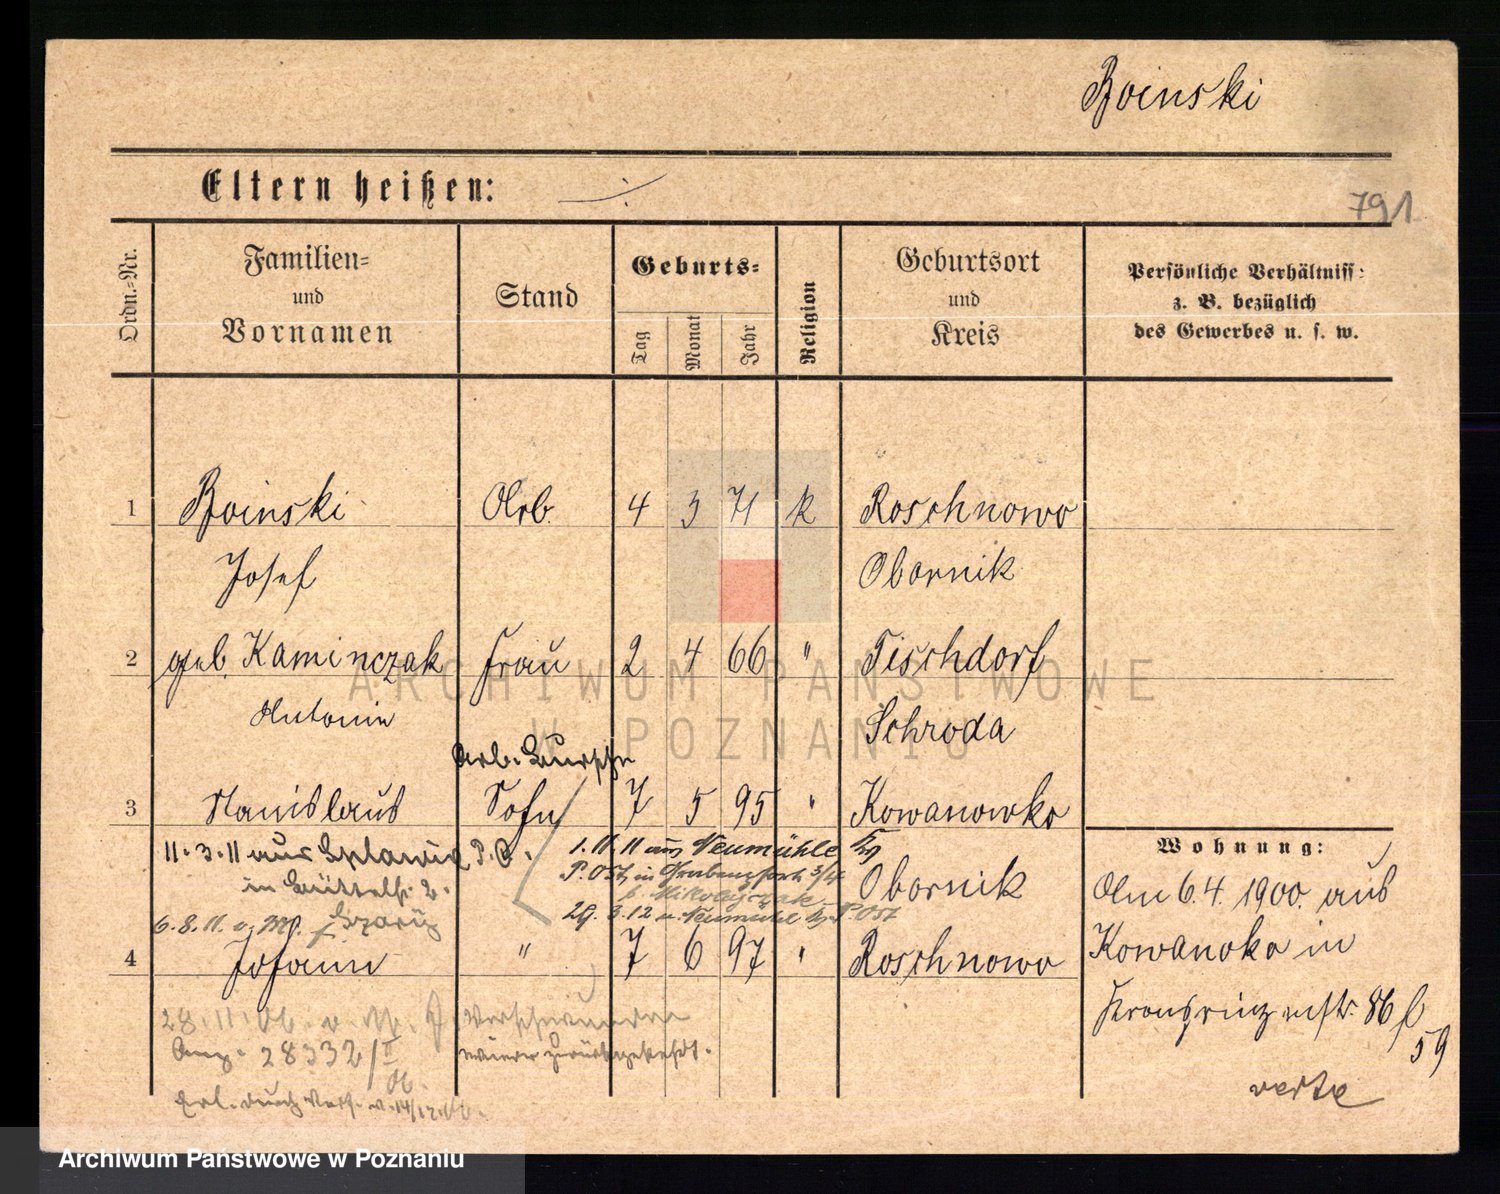 Boinski
Eltern heißen: ./.
791
Ordn.-Nr.
Familien-
und
Vornamen
Stand
Geburts-
Tag
Monat
Jahr
Religion
Geburtsort
und
Kreis
Persönliche Verhältniss:
z. B. bezüglich
des Gewerbes u. s. w.
1 Boinski Arb. 4 3 71 k Roschnowo
Josef Obornik
2 geb. Kaminczak Frau 2 4 66 " Tischdorf
Antonie Schroda
Arb. Bursche
3 Stanislaus Sohn 7 5 95 " Kowanowko
11.3.11 aus
1.11.11 aus Neumühle
Obornik
P. Ost, in
b. Mikolajczak
6.8.11. v.
29.3.12 n. Neumühl P. Ost
4 Johann " 7 6 97 " Roschnowo
28.11.06. v. Verschwunden
Anz. 28332/II 06. wieder zurückgekehrt.
Erl. durch Verf. v. 14/12.06.
Wohnung:
Am 6.4. 1900. aus
Kowanoko in
Kronprinzenstr. 86
59
verte
ARCHIWUM PAŃSTWOWE
W POZNANIU
Archiwum Państwowe w Poznaniu